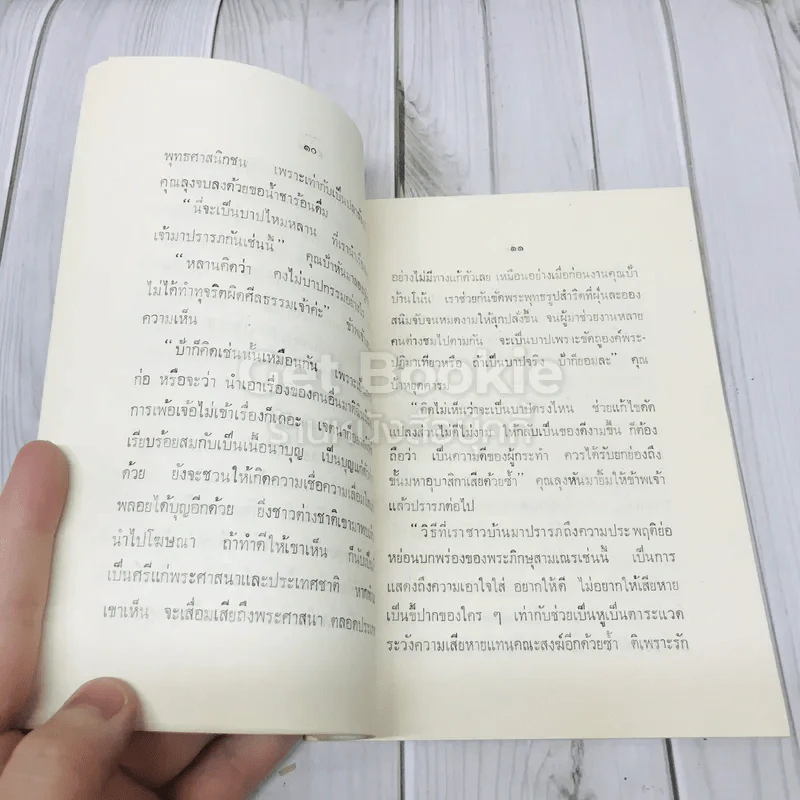 ๑๐
พุทธศาสนิกชน เพราะเท่ากับเป็น
คุณลุงจบลงด้วยขอน้ำชาร้อนดื่ม
“นี่จะเป็นบาปไหมหลาน ที่เรา
เจ้ามาปรารภกันเช่นนี้” คุณป้าหันมา
“หลานคิดว่า คงไม่บาปกรรมอย่าง
ไม่ได้ทำทุจริตผิดศีลธรรมเจ้าค่ะ”
ความเห็น
“ป้าก็คิดเช่นนั้นเหมือนกัน
ก่อ หรือจะว่า นำเอาเรื่องของคนอื่นมา
การเพ้อเจ้อไม่เข้าเรื่องก็เถอะ
เรียบร้อยสมกับเป็นเนื้อนาบุญ
ด้วย ยังจะชวนให้เกิดความเชื่อความเลื่อมใส
พลอยได้บุญอีกด้วย ยิ่งชาวต่างชาติเขามา
นำไปโฆษณา ถ้าทำดีให้เขาเห็น
เป็นศรีแก่พระศาสนาและประเทศชาติ
เขาเห็น จะเสื่อมเสียถึงพระศาสนา
๑๑
อย่างไม่มีทางแก้ตัวเลย เหมือนอย่างเมื่อก่อนงานคุณป้า
บ้านโน้น เราช่วยกันขัดพระพุทธรูปสำริดที่ฝุ่นละออง
สนิมจับจนหมดงามให้สุกปลั่งขึ้น จนผู้มาช่วยงานหลาย
คนต่างชมไปตามกัน จะเป็นบาปเพราะขัดถูองค์พระ-
ปฏิมาเทียวหรือ ถ้าเป็นบาปจริง ป้าก็ยอมละ” คุณ
ป้าหยุดคำรม
“คิดไม่เห็นว่าจะเป็นบาปตรงไหน ช่วยแก้ไขดัด
แปลงส่วนไม่ดีไม่งาม ให้กลับเป็นของดีงามขึ้น ก็ต้อง
ถือว่า เป็นความดีของผู้กระทำ ควรได้รับยกย่องถึง
ขั้นมหาอุบาสิกาเสียด้วยซ้ำ” คุณลุงหันมายิ้มให้ข้าพเจ้า
แล้วปรารภต่อไป
“วิธีที่เราชาวบ้านมาปรารภถึงความประพฤติย่อ
หย่อนบกพร่องของพระภิกษุสามเณรเช่นนี้ เป็นการ
แสดงถึงความเอาใจใส่ อยากให้ดี ไม่อยากให้เสียหาย
เป็นขี้ปากของใคร ๆ เท่ากับช่วยเป็นหูเป็นตาระแวด
ระวังความเสียหายแทนคณะสงฆ์อีกด้วยซ้ำ ติเพราะรัก
Get Bookie